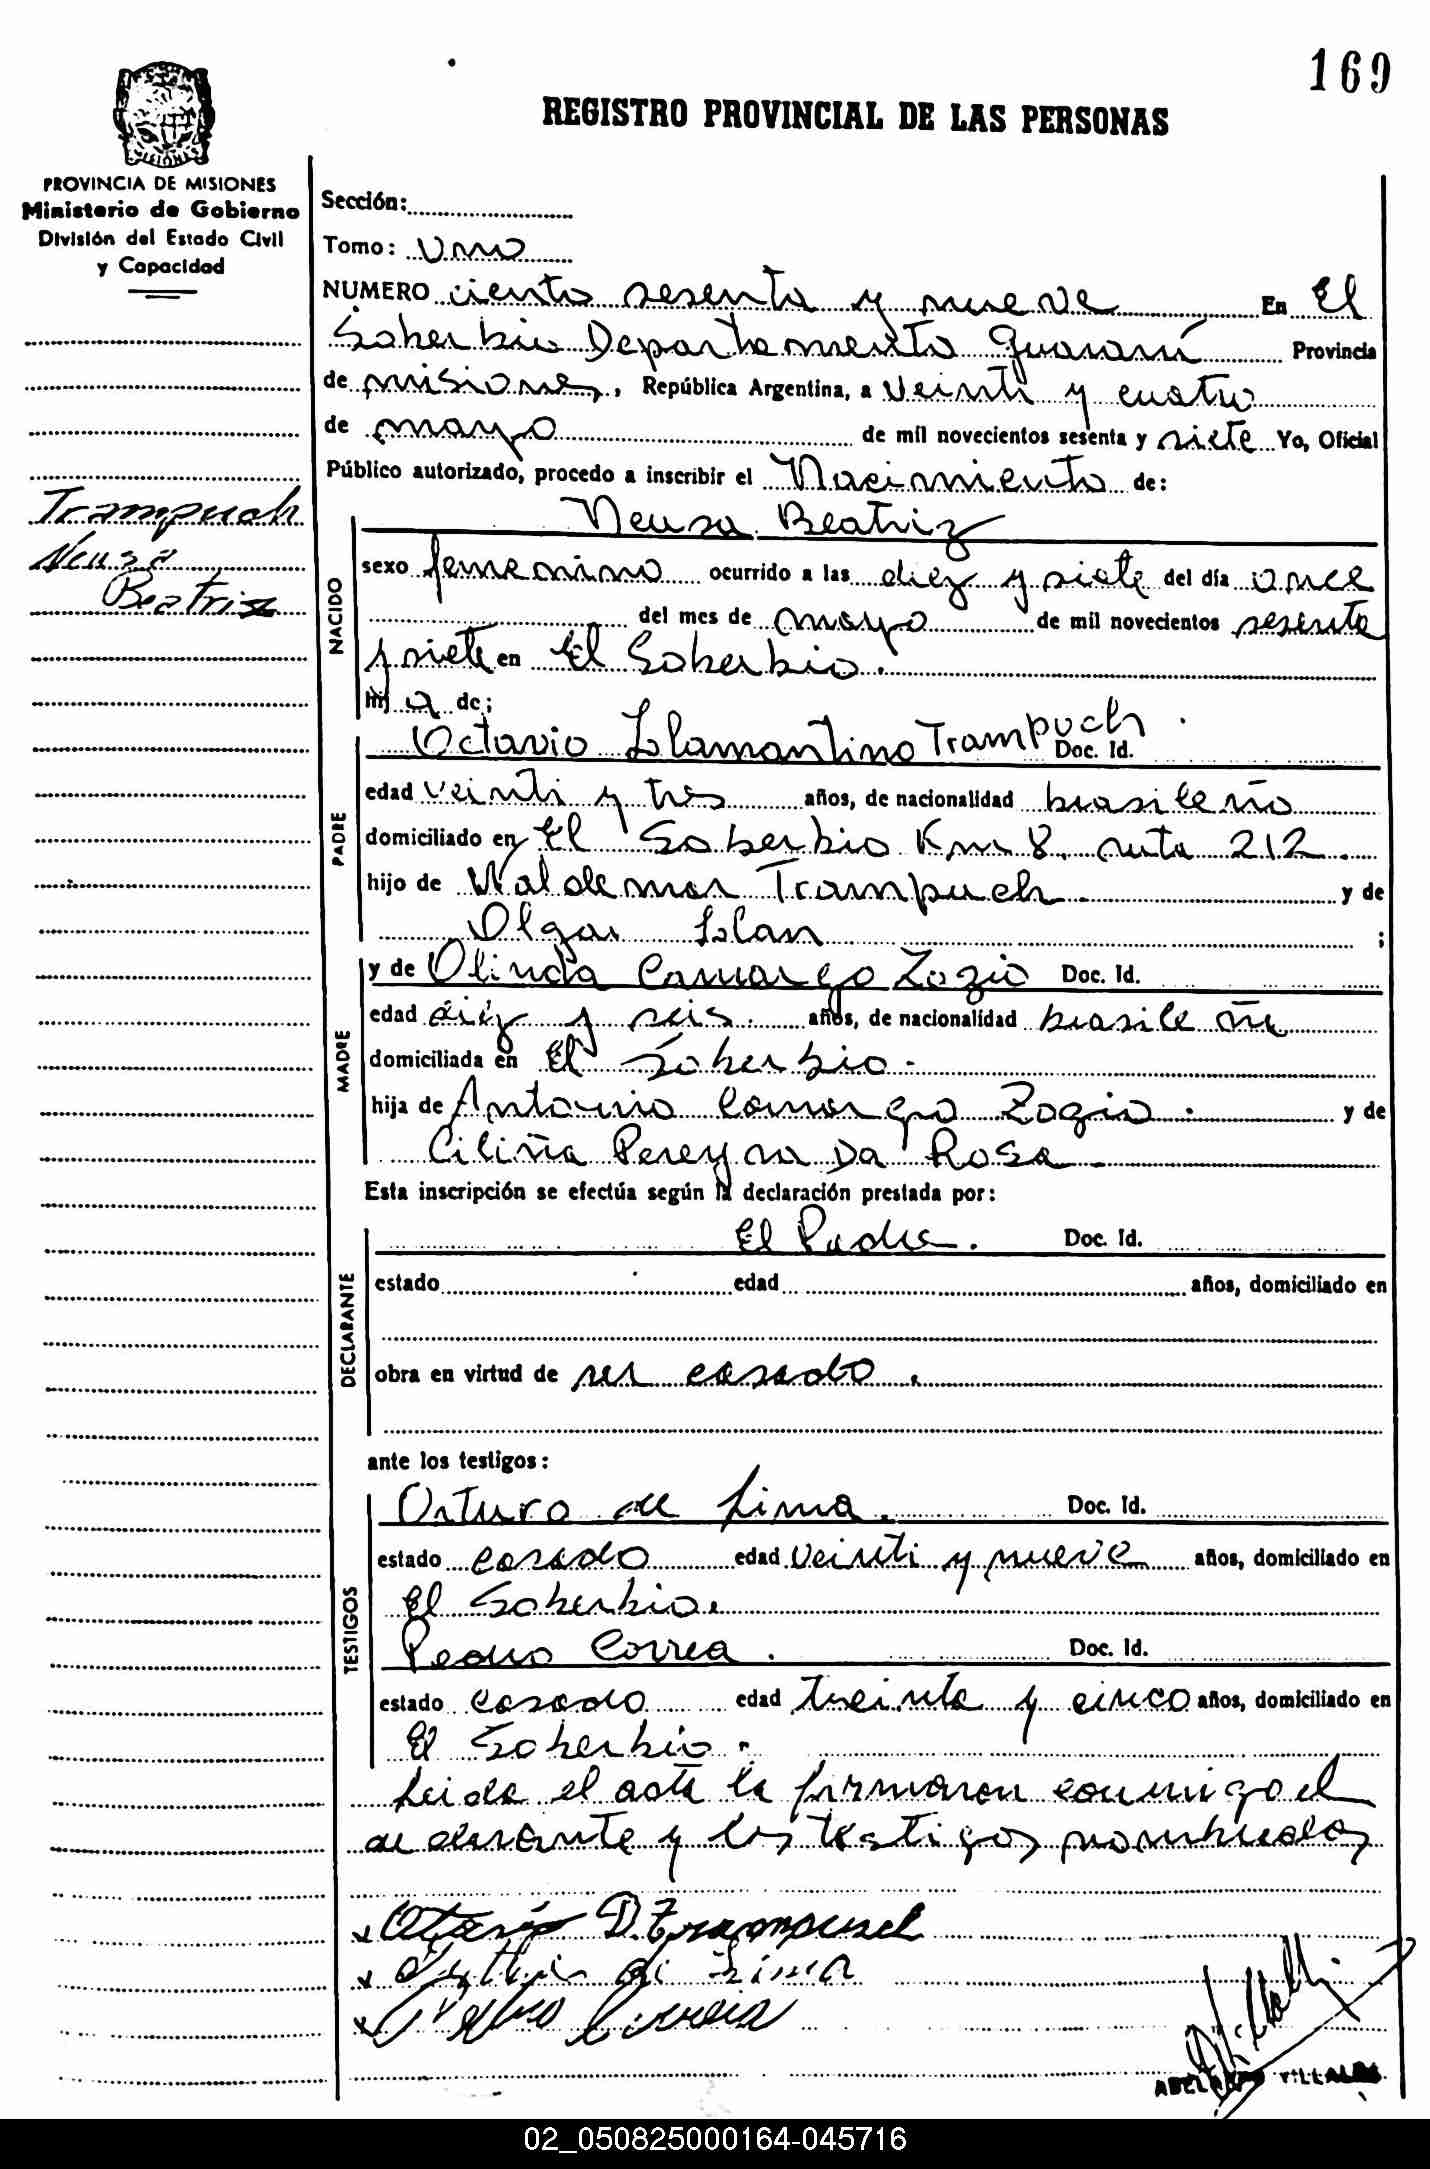 169
REGISTRO PROVINCIAL DE LAS PERSONAS
MISIONES
PROVINCIA DE MISIONES
Ministerio de Gobierno
División del Estado Civil
y Capacidad
Trampuch
Neusa
Beatriz
Sección:
Tomo: Uno
NUMERO ciento sesenta y nueve En El
Soberbio Departamento Guaraní Provincia
de misiones, República Argentina, a veinti y cuatro
de mayo de mil novecientos sesenta y siete Yo, Oficial
Público autorizado, procedo a inscribir el Nacimiento de:
Neusa Beatriz
NACIDO
sexo femenino ocurrido a las diez y siete del día once
del mes de mayo de mil novecientos sesenta
y siete en El Soberbio.
hija de;
PADRE
Octavio Llamantino Trampuch Doc. Id.
edad veinti y tres años, de nacionalidad brasileño
domiciliado en El Soberbio Km 8. ruta 212.
hijo de Waldemar Trampuch y de
Olga ;
MADRE
y de Olinda Camargo Zozio Doc. Id.
edad diez y seis. años, de nacionalidad brasileña
domiciliada en El Soberbio.
hija de Antonio Camargo Zozio. y de
Ciliña Pereyra Da Rosa
Esta inscripción se efectúa según la declaración prestada por:
DECLARANTE
El Padre. Doc. Id.
estado edad años, domiciliado en
obra en virtud de ser casado.
ante los testigos:
TESTIGOS
Orturo de Lima. Doc. Id.
estado casado edad veinti y nueve años, domiciliado en
El Soberbio.
Pedro Correa. Doc. Id.
estado casado edad treinta y cinco años, domiciliado en
El Soberbio.
Leida el acta la firmaron conmigo el
declarante y los testigos nombrados
x Otavio D. Trampusch
x de Lima
x Pedro Correia
ABELARDO VILLALBA
02_050825000164-045716